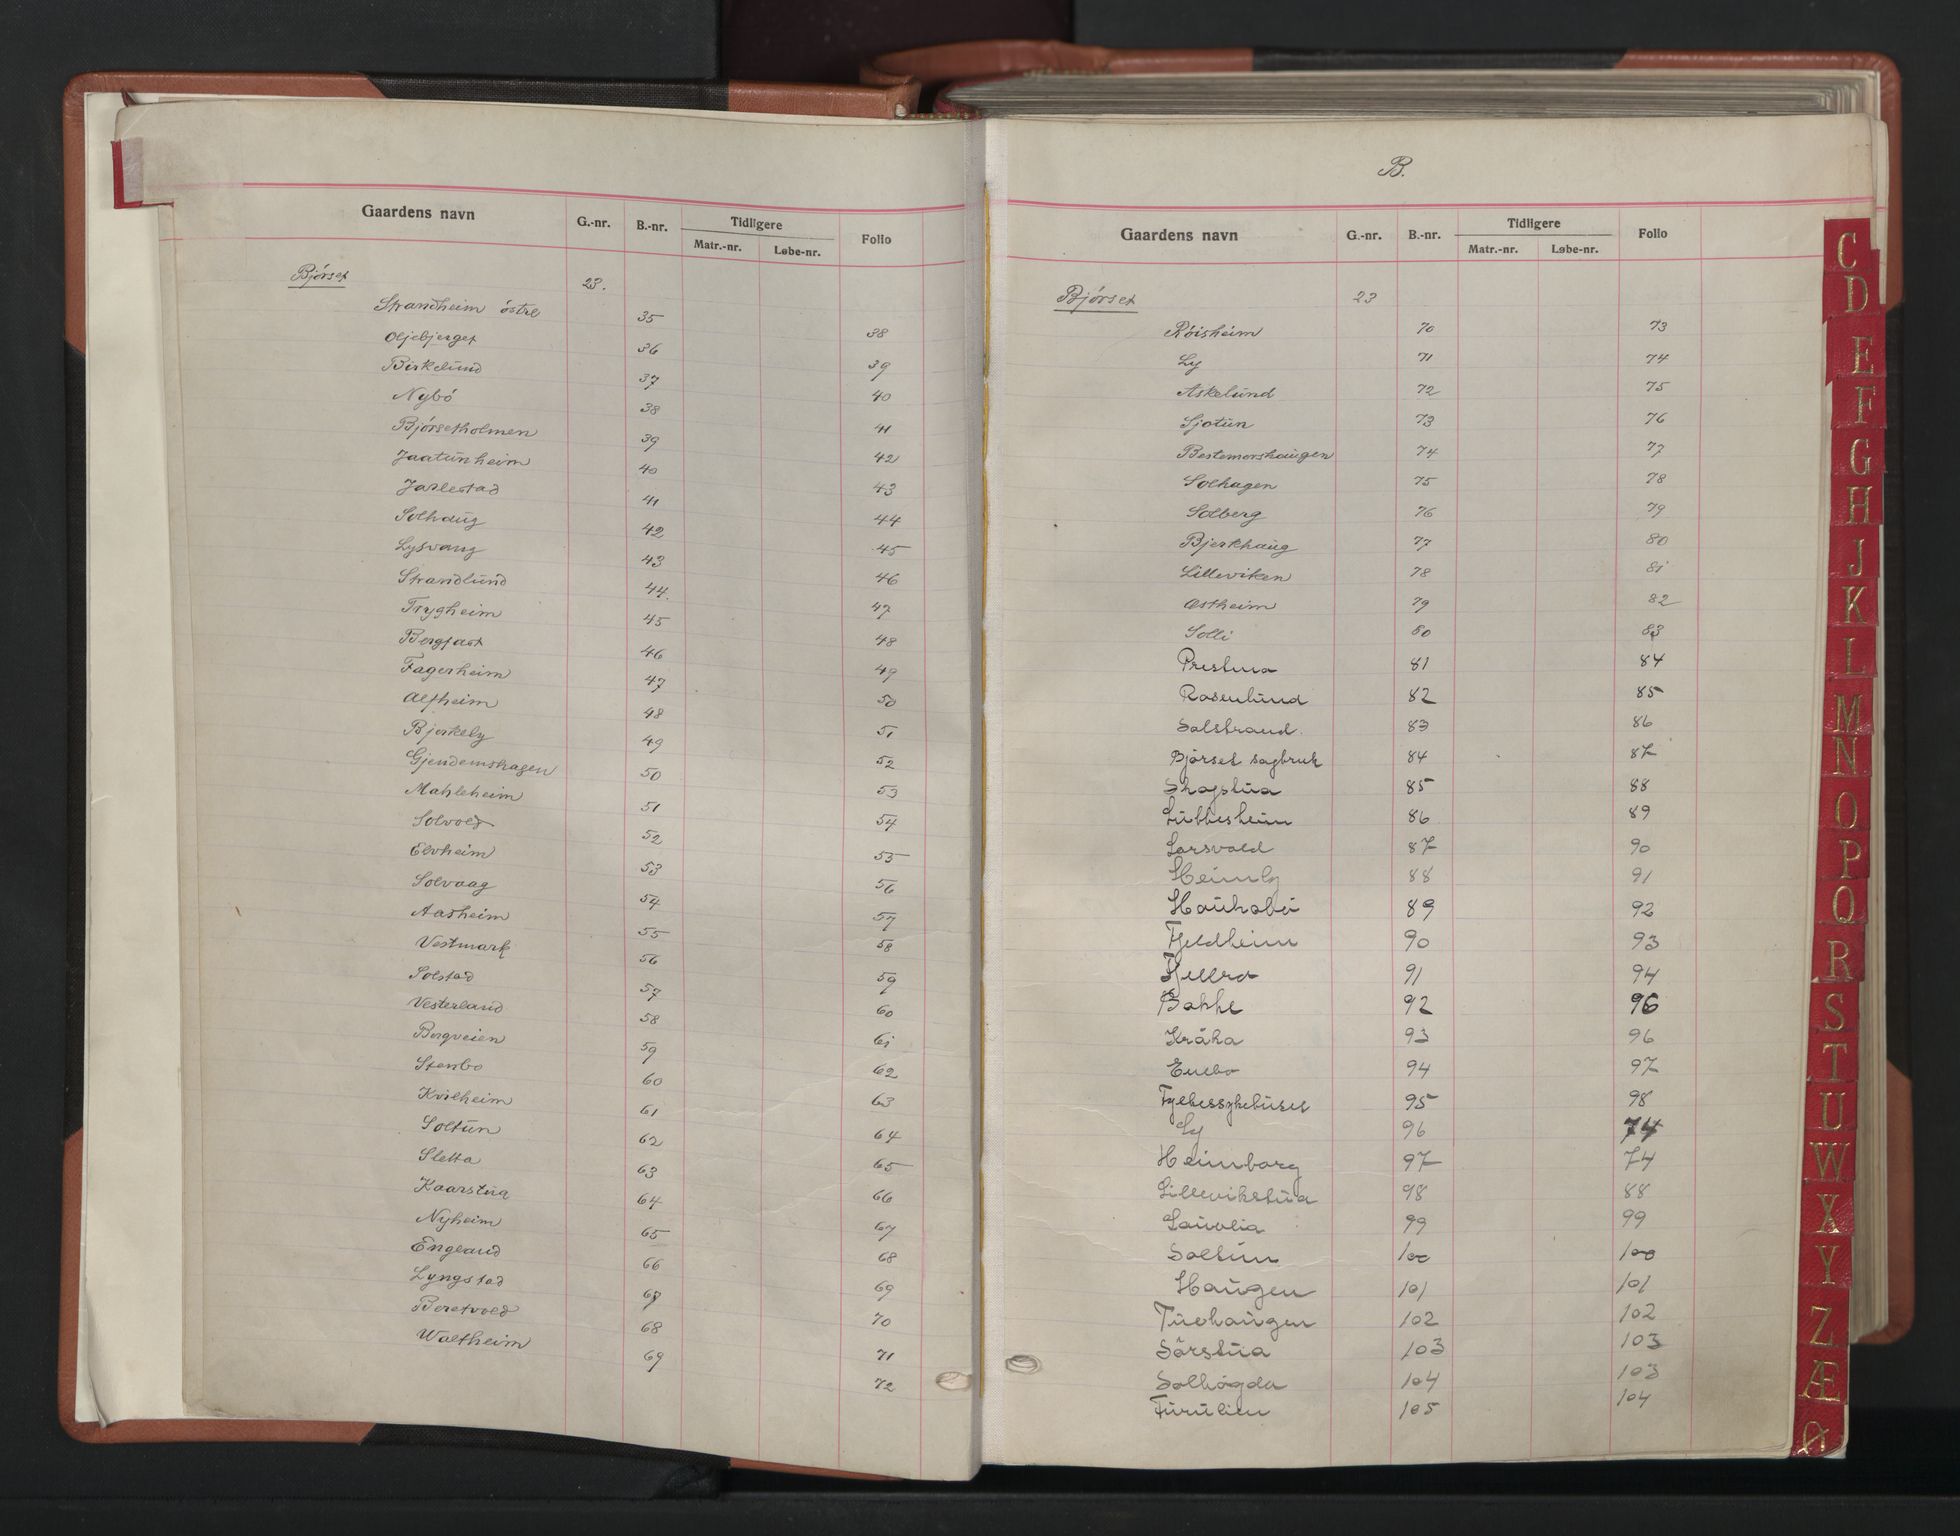 Gaardens navn G.-nr. B.-nr. Tidligere Folio
Matr.-nr. Løbe-nr.
Bjórset 23.
Strandheim óstre 35 38
Oljebjerget 36 39
Birkelund 37 40
Nybó 38 41
Bjórsetholmen 39 42
Jaatunheim 40 43
Jarlestad 41 44
Solhaug 42 45
Lysvang 43 46
Strandlund 44. 47
Trygheim 45 48
Bergfast 46 49
Fagerheim 47 50
Alfheim 48 51
Bjerkely 49 52
Gjendemshagen 50 53
Mahleheim 51 54
Solvold 52 55
Elvheim 53 56
Solvaag 54 57
Aasheim 55 58
Vestmark 56 59
Solstad 57 60
Vesterland 58 61
Bergveien 59 62
Stenbo 60 63
Kvilheim 61 64
Soltun 62 65
Sletta 63 66
Kaarstua 64 67
Nyheim 65 68
England 66 69
Lyngstad 67 70
Beretvold 68 71
Waltheim 69 72
B.
Gaardens navn G.-nr. B.-nr. Tidligere Folio
Matr.-nr. Løbe-nr.
Bjórset 23
Róisheim 70 73
Ly 71 74
Askelund 72 75
Sjøtun 73 76
Bestemorshaugen 74 77
Solhagen 75 78
Solberg 76 79
Bjerkhaug 77 80
Lilleviken 78 81
Østheim 79 82
Solli 80 83
Prestua 81 84
Rosenlund 82 85
Solstrand. 83 86
Bjørset sagbruk 84 87
Skogstua 85 88
Lübbesheim 86 89
Larsvold 87 90
Heimly 88 91
Haukabø 89 92
Fjeldheim 90 93
Fjellro 91 94
Bakke 92 96
Kråka 93 96
Enebo 94 97
Fylkessykehuset 95 98
Ly 96 74
Heimborg 97 74
Lillevikstua 98 88
Lauvlia 99 99
Soltun 100 100
Haugen 101 101
Tuehaugen 102 102
Sørstua 103 103
Solhøgda 104 103
Furulien 105 104
C
D
E
F
G
H
J
K
L
M
N
O
P
Q
R
S
T
U
W
X
Y
Z
Æ
Ø